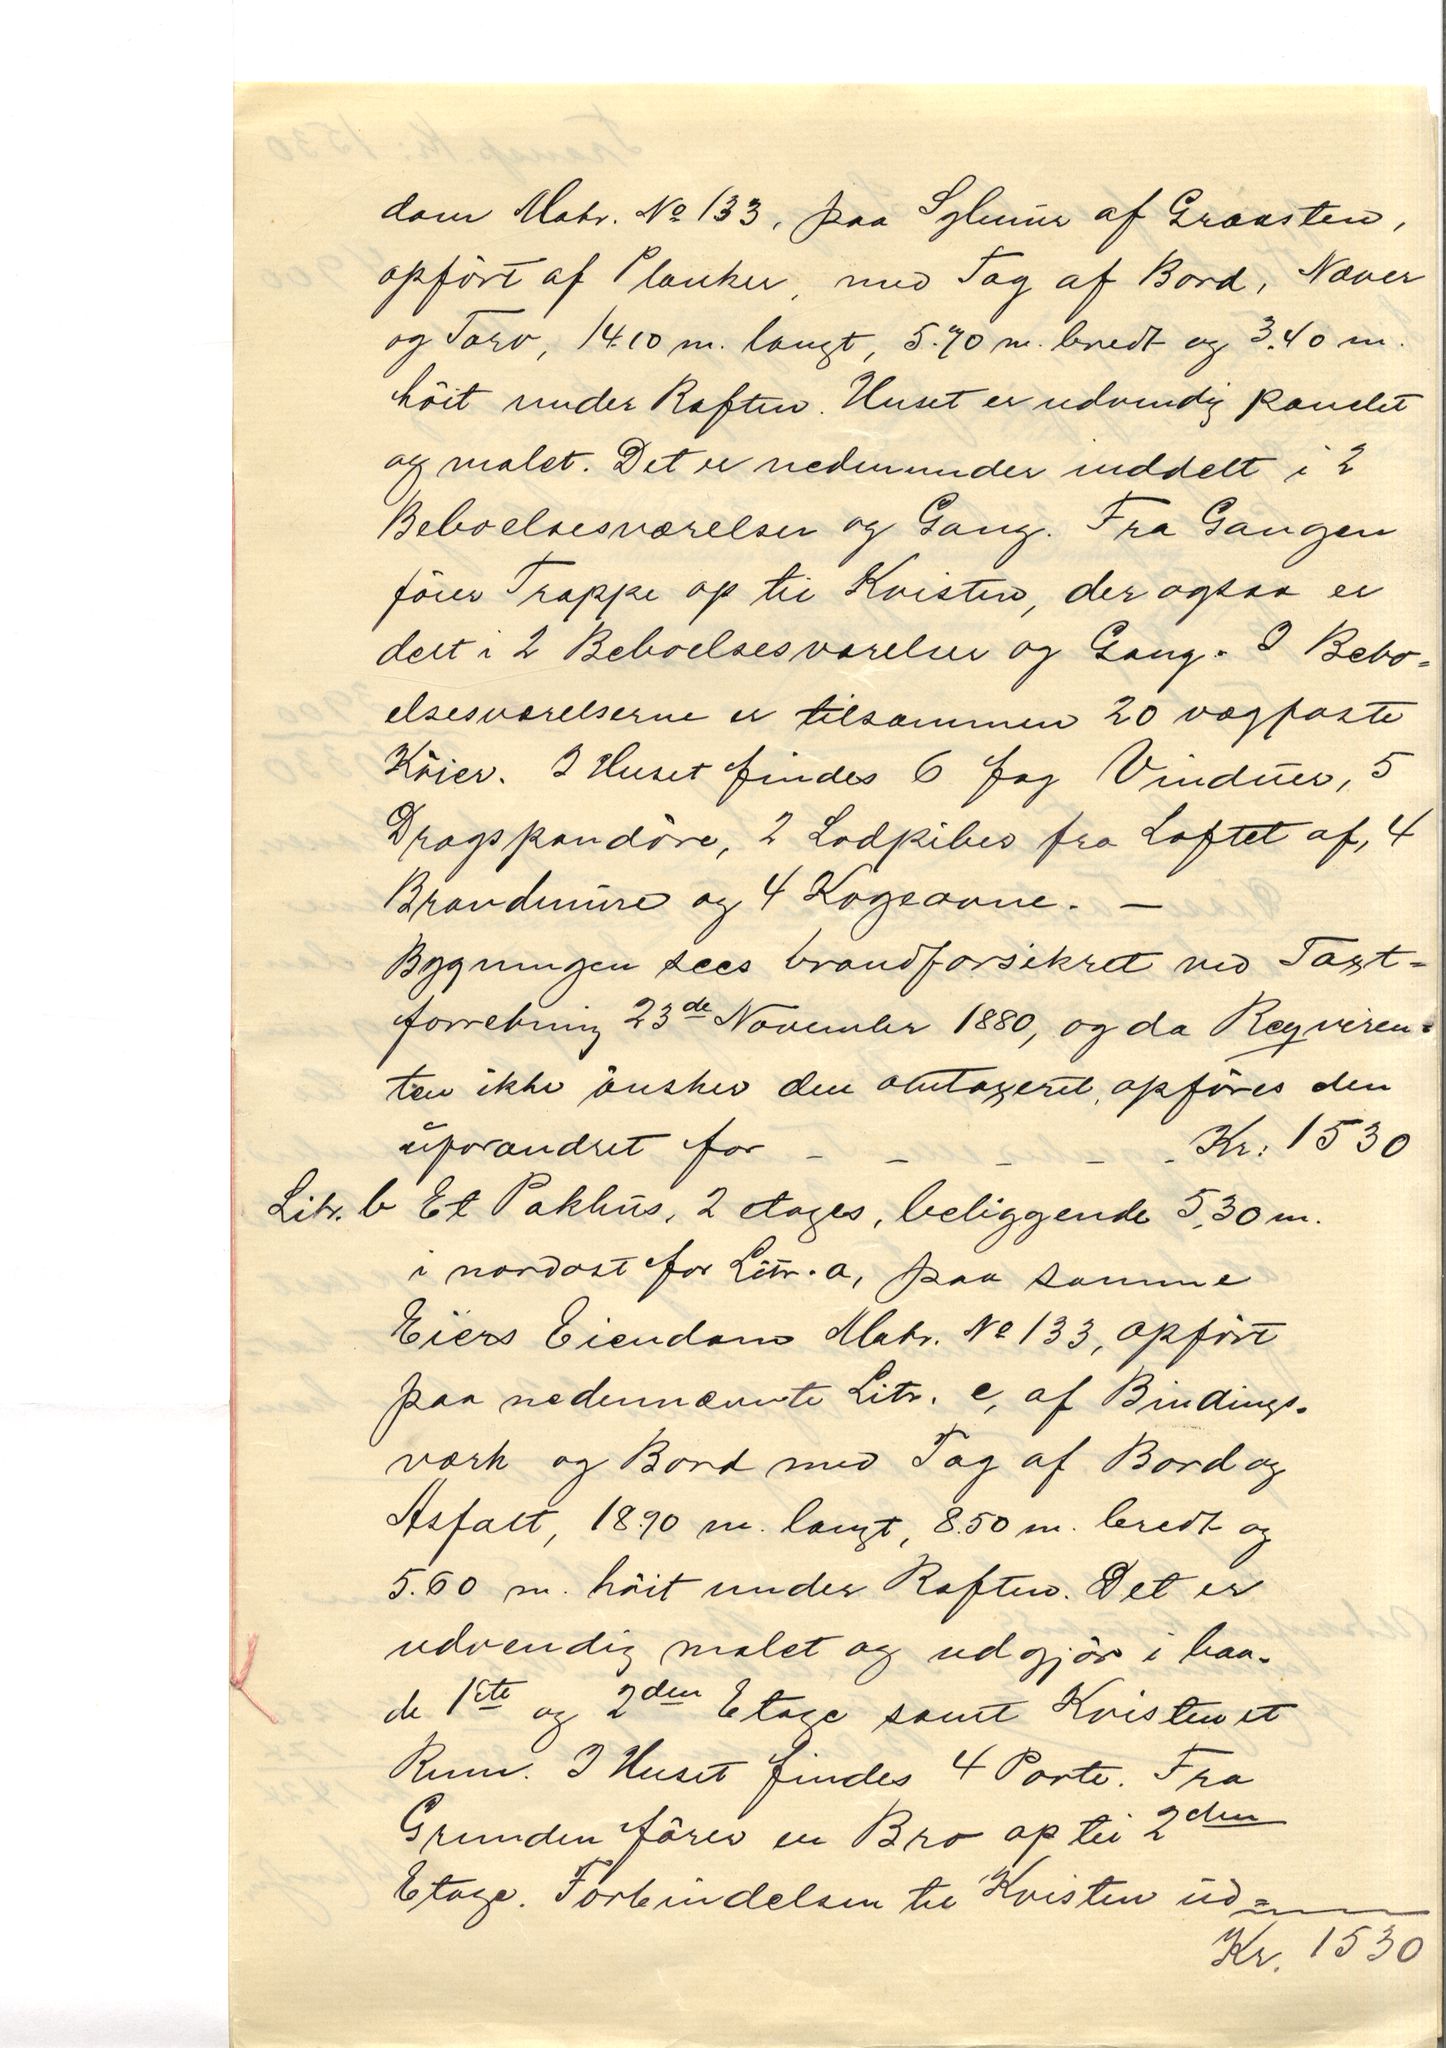 dom Matr. No 133, paa Sylmur af Graasten,
opført af Planker, med Tag af Bord, Næver
og Torv, 14.10 m. langt, 5.70 m. bredt og 3.40 m.
höit under Raften. Huset er udvendig panelet
og malet. Det er nedenunder inddelt i 2
Beboelsesværelser og Gang. Fra Gangen
förer Trappe op til Kvisten, der ogsaa er
delt i 2 Beboelsesværelser og Gang. I Bebo-
elsesværelserne er tilsammen 20 vægfaste
Köier. I Huset findes 6 fag Vinduer, 5
Dragspandöre, 2 Lodpiber fra Loftet af, 4
Brandmure og 4 Kogeovne. —
Bygningen sees brandforsikret ved Taxt-
forretning 23de November 1880, og da Reqviren-
ten ikke önsker den omtaxeret, opföres den
uforandret for - - - - - Kr: 1530
Litr. b Et Pakhus, 2 etages, beliggende 5,30 m.
i nordost for Litr. a, paa samme
Eiers Eiendom Matr. No 133, opfört
paa nedennævnte Litr. c, af Bindings-
værk og Bord med Tag af Bord og
Asfalt, 18.90 m. langt, 8.50 m. bredt og
5.60 m. höit under Raften. Det er
udvendig malet og udgjör i baa-
de 1ste og 2den Etage samt Kvisten et
Rum. I Huset findes 4 Porte. Fra
Grunden förer en Bro op til 2den
Etage. Forbindelsen til Kvisten ud-
Kr. 1530